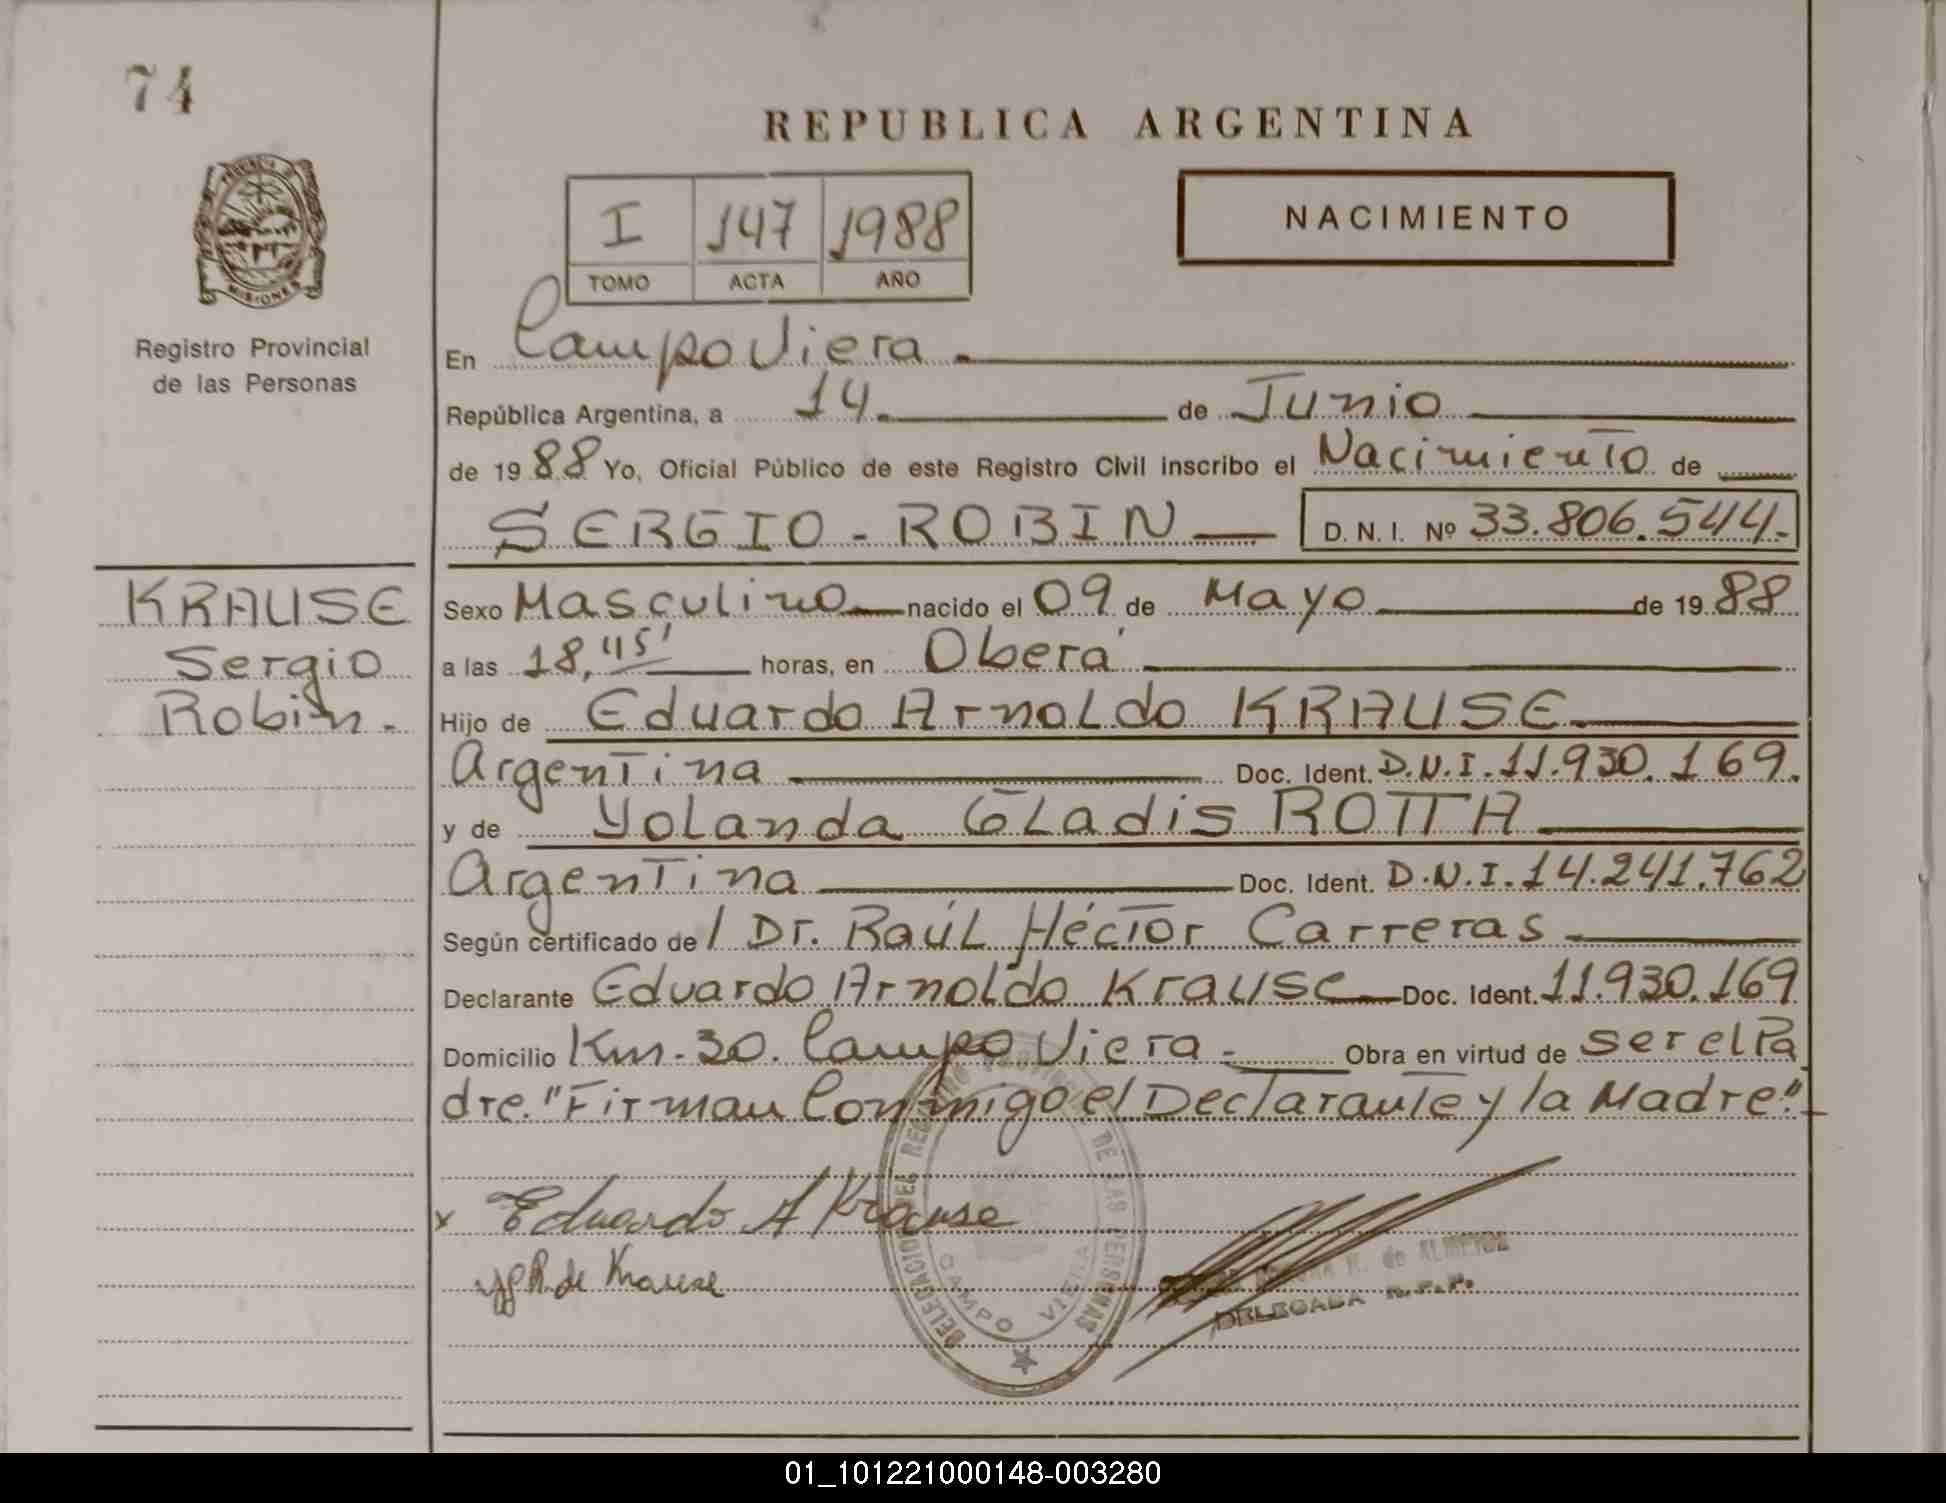 74
REPUBLICA ARGENTINA
I 147 1988
TOMO ACTA AÑO
NACIMIENTO
MISIONES
Registro Provincial
de las Personas
En Campo Viera.
República Argentina, a 14. de Junio
de 1988 Yo, Oficial Público de este Registro Civil inscribo el Nacimiento de
SERGIO - ROBIN D. N. I. Nº 33.806.544.-
KRAUSE
Sergio
Robin.-
Sexo Masculino nacido el 09 de Mayo de 1988
a las 18,45' horas, en Oberá
Hijo de Eduardo Arnoldo KRAUSE.
Argentina Doc. Ident. D.N.I. 11.930.169.
y de Yolanda Gladis ROTTA
Argentina Doc. Ident. D.N.I. 14.241.762
Según certificado de / Dr. Raúl Héctor Carreras.
Declarante Eduardo Arnoldo Krause Doc. Ident. 11.930.169
Domicilio Km. 30. Campo Viera.- Obra en virtud de ser el Pa
dre. "Firman Conmigo el Declarante y la Madre".-
x Eduardo A Krause
de Krause
DELEGACION DEL REGISTRO DE LAS PERSONAS
CAMPO VIERA
de ALMEIDA
DELEGADA R.P.P.
01_101221000148-003280